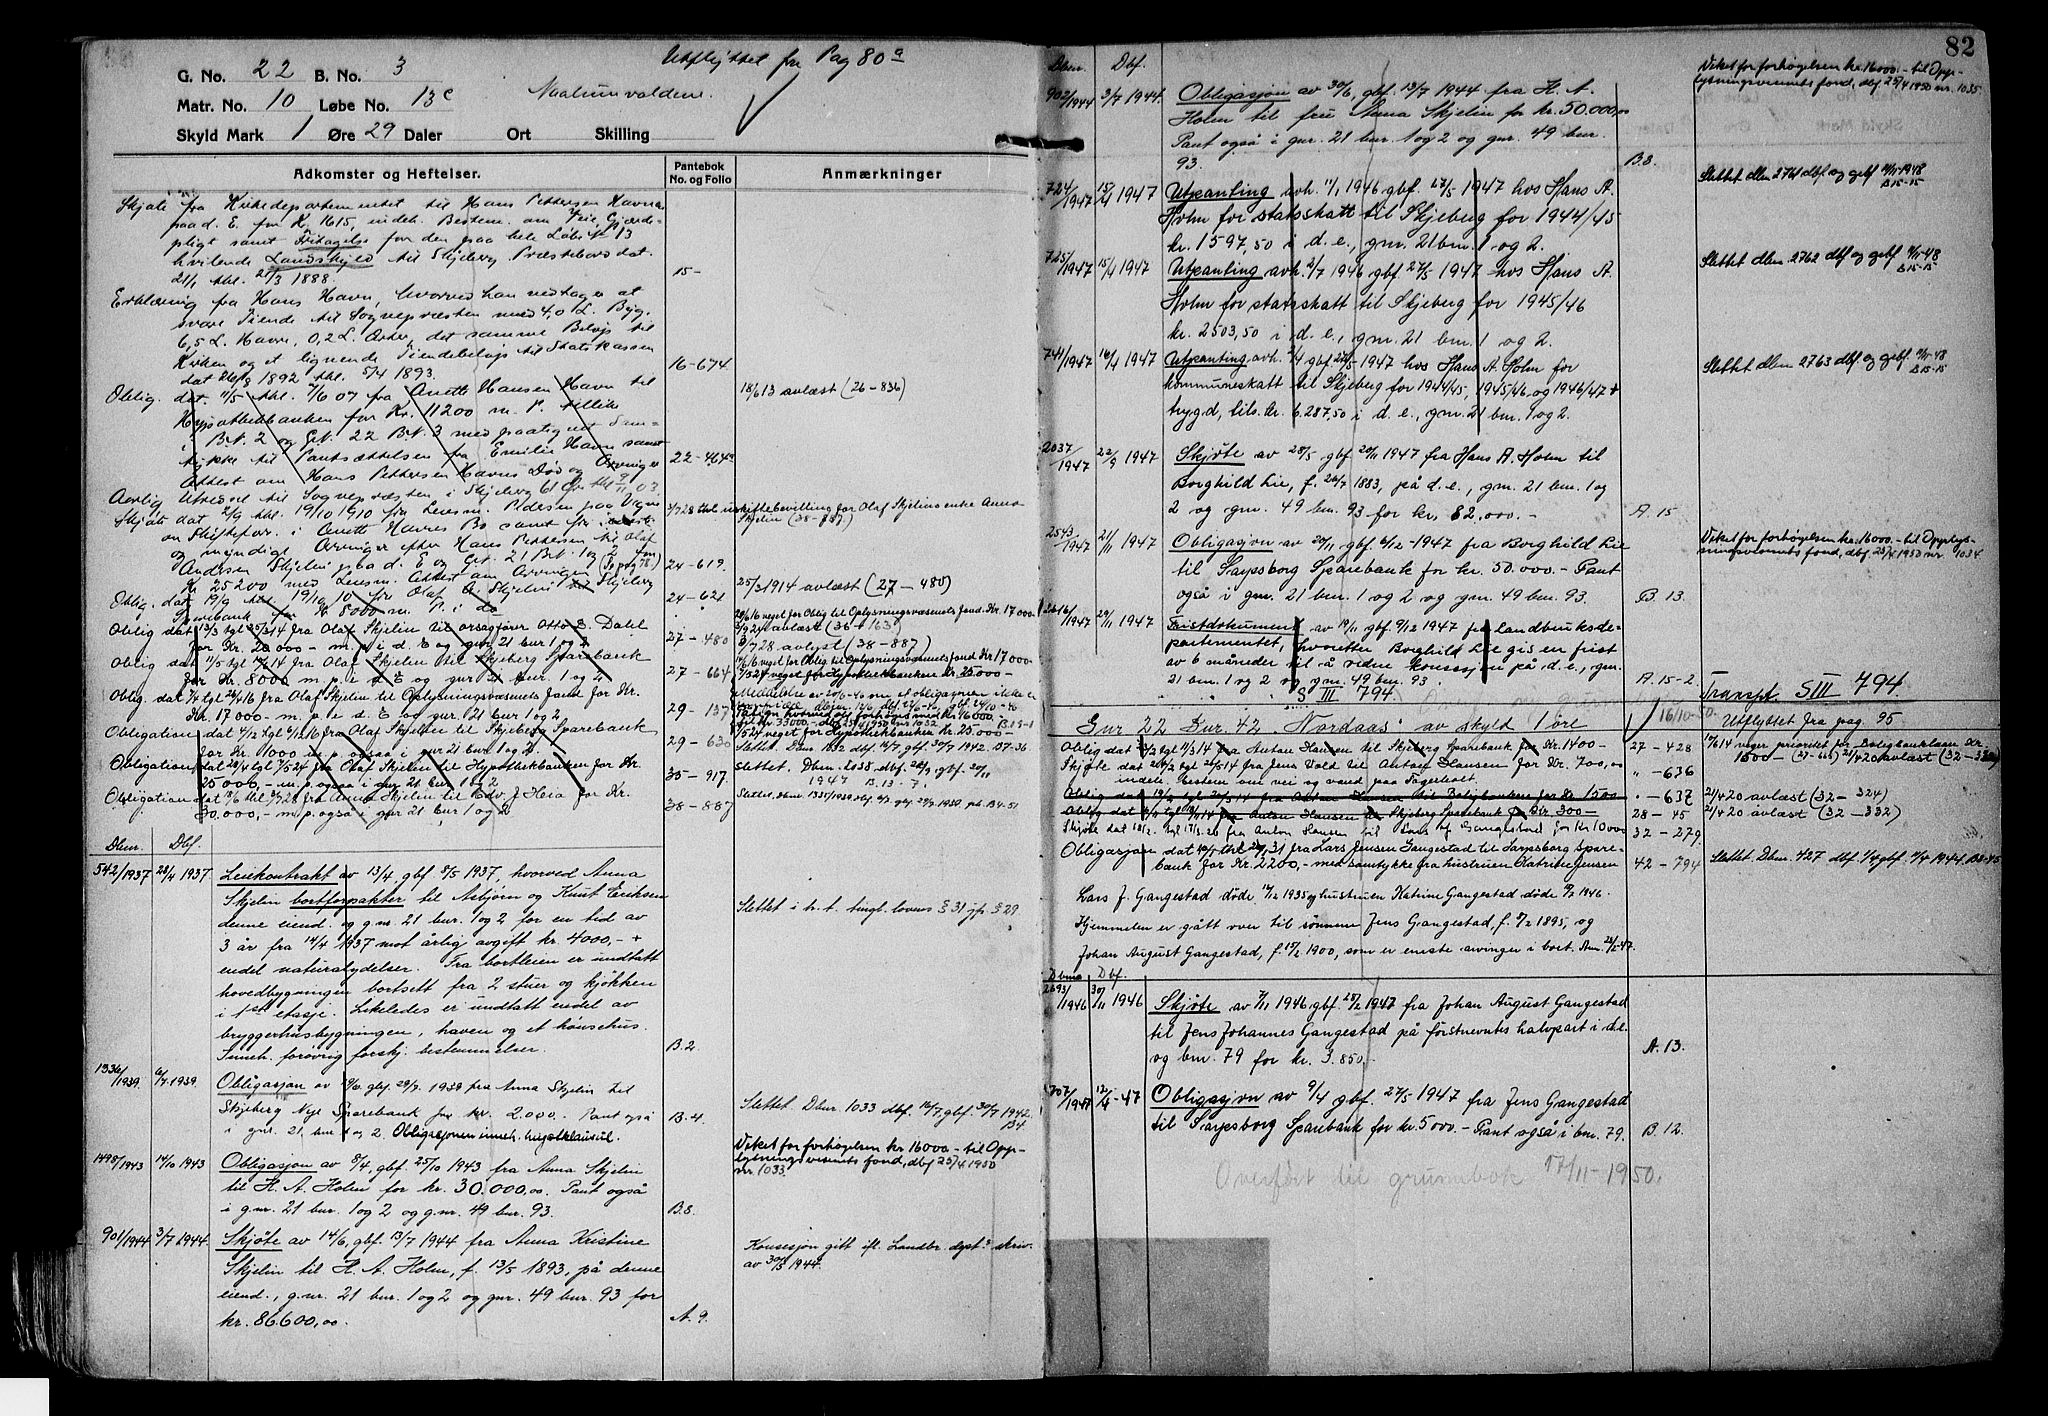 G. No. 22 B. No. 3 Utflyttet fra Pag 80 a
Matr. No. 10 Løbe No. 13c
Skyld Mark 1 Øre 29 Daler Ort Skilling
Adkomster og Heftelser. Pantebok No. og Folio Anmærkninger
Skjøte fra Kirkedepartementet til Hans Pettersen Havn
paa d. E. for K. 1615, indeh. Bestem. om Veie, Gjærde-
pligt samt Fritagelse for den paa hele Løbe No 13
hvilende Landskyld til Skjeberg Præstebord dat.
21/1 thl. 21/3 1888. 15-
Erklæring fra Hans Havn, hvorved han vedtager at
svare Tiende til Sognepræsten med 4,0 L. Byg,
6,5 L. Havre, 0,2 L. Erter, det samme Beløp til
Kirken og et lignende Tiendebeløp til Statskassen
dat 26/8 1892 thl. 5/4 1893. 16-674.
Oblig. dat. 11/5 thl. 7/6 07 fra Anette Hansen Havn til 18/6 13 avlæst (26-836)
Hypothekbanken for Kr. 11200 m. P. tillike
i Br. 2 og Gr. 22 Br. 3 med paategnet Sam-
tykke til Pantsættelsen fra Emilie Havn samt
Attest om Hans Pettersen Havns Død og Arvinger 22-464
Aarlig Utredsel til Sognepræsten i Skjeberg
Skjøte dat 2/9 thl. 19/10 1910 fra Lensm. Pedersen paa Vegne 3/7 28 thl. uskiftebevilling for Olaf Skjelins enke Anna
av Skiftefor. i Anett Havns Bo samt fra Skjelin (38-887)
og myndige Arvinger efter Hans Pettersen til Olaf
Andersen Skjelin paa d. E og Gr. 21 Br. 1 og 2 for 24-619.
Kr 25200 med Lensm. Attest om Arvingen
Oblig. dat 19/9 thl. 19/10 10 fra Olaf A. Skjelin til Skjeberg 25/3 1914 avlæst (27-480)
Sparebank for Kr 8000 m. P. i do 24-621
Oblig dat 13/3 tgl 25/3 14 fra Olaf Skjelin til orsagfører Otto E. Dahl
for Kr. 20000 - m. p. i d. E og gnr 21 bnr 1 og 2 27-480
Oblig dat 11/5 tgl 14/6 14 fra Olaf Skjelin til Skjeberg Sparebank 3/7 28 avlyst (38-887)
for Kr. 8000 m. p. i d. E og gnr 21 bnr. 1 og 2 27-664
Oblig. dat 7/4 tgl 28/6 16 fra Olaf Skjelin til Oplysningsvæsenets fond for Kr.
Kr. 17 000 - m. p. i d. E og gnr. 21 bnr 1 og 2 29-137
Obligation dat 4/12 tgl 6/12 16 fra Olaf Skjelin til Skjeberg Sparebank
for Kr 1000 m. p. ogsaa i gnr 21 bnr 1 og 2. 29-630
Obligation dat 28/4 tgl 7/5 24 fra Olaf Skjelin til Hypothekbanken for Kr. Slettet Dbnr. 1032 dbf. 16/7, gbf 30/7 1942. 07-36
25 000,- m. p. ogsaa i gnr 21 bnr 1 og 2 35-917 Slettet. Dbnr. 2038 dbf. 22/9, gbf. 20/11 1947 B.13
Obligation dat 19/6 thl. 3/7 28 fra Anna Skjelin til Edv. J Heia for Kr.
30.000,- m. p. også i gnr 21 bnr 1 og 2 38-887
Dbnr. Dbf.
542/1937 28/4 1937 Leiekontrakt av 13/4, gbf 8/5 1937, hvorved Anna
Skjelin bortforpakter til Asbjørn og Knut Eriksen Slettet i h. t. tingl. lovens § 31 jfr. § 29
denne eiend. og g.nr. 21 bnr. 1 og 2 for en tid av
3 år fra 14/4 1937 mot årlig avgift kr. 4000,- +
endel naturalydelser. Fra bortleien er undtatt
hovedbygningen bortsett fra 2 stuer og kjøkken
i 1ste etasje. Likeledes er undtatt endel av
bryggerhusbygningen, haven og et hønsehus.
Inneh. forøvrig forskj. bestemmelser. B.2.
1336/1939. 6/7 1939. Obligasjon av 9/6 gbf. 29/7. 1939 fra Anna Skjelin til
Skjeberg Nye Sparebank for kr. 2.000. Pant også B.4. Slettet Dbnr. 1033 dbf. 16/7, gbf. 30/7 1942. B4
i gnr. 21. bnr 1 og 2. Obligasjonen inneh. husetklausul.
1498/1943 14/10 1943 Obligasjon av 8/4, gbf. 25/10 1943 fra Anna Skjelin Veket for forhøgelsen kr 16000.- til Opp-
til H. A. Holm for kr. 30.000,00. Pant også lysningsvesenets fond, dbf 25/4 1950 nr. 1033
i g.nr. 21 bnr. 1 og 2 og g.nr. 49 bnr. 93. B.8.
901/1944 3/7 1944. Skjøte av 14/6, gbf 13/7 1944 fra Anna Kristine Konsesjon gitt ifl. Landbr. dept.s skriv.
Skjelin til H. A. Holm, f. 13/5 1893, på denne av 30/3 1944.
eiend., g.nr. 21 bnr. 1 og 2 og gnr. 49 bnr. 93 for
kr. 86.600,00. A. 9.
82
Dbnr. Dbf.
902/1944 3/7 1944. Obligasjon av 30/6, gbf. 13/7 1944 fra H. A. Veket for forhøgelsen kr. 16000.- til Opp-
Holm til fru Anna Skjelin for kr. 50.000,00 lysningsvesenets fond, dbf 25/4 1950 nr. 1035
Pant også i gnr. 21 bnr. 1 og 2 og gnr. 49 bnr.
93. B.8.
724/1947 15/4 1947 Utpanting avh. 11/1 1946 gbf. 27/5 1947 hos Hans A. Slettet dbnr 2761 dbf og gbf 1948 B 15-15
Holm for statsskatt til Skjeberg for 1944/45
kr. 1597,50 i d. e., gnr. 21 bnr. 1 og 2.
725/1947 15/4 1947 Utpanting avh. 2/7 1946 gbf 27/5 1947 hos Hans A. Slettet dbnr 2762 dbf og gbf 48 B 15-15
Holm for statsskatt til Skjeberg for 1945/46
kr. 2503,50 i d. e., gnr. 21 bnr. 1 og 2.
741/1947 16/4 1947 Utpanting avh. 2/4 gbf. 27/5 1947 hos Hans A. Holm for Slettet dbnr 2763 dbf og gbf. 48 B 15-15
kommuneskatt til Skjeberg for 1944/45, 1945/46 og 1946/47 +
trygd, tils. kr. 6.287,50 i d. e., gnr. 21 bnr. 1 og 2.
2037/1947 22/9 1947 Skjøte av 28/5 gbf. 20/11 1947 fra Hans A. Holm til
Borghild Lie, f. 26/7 1883, på d. e., gnr. 21 bnr. 1 og
2 og gnr. 49 bnr. 93 for kr. 82,000.- A. 15
2543/1947 21/11 1947 Obligasjon av 20/11 gbf 6/12-1947 fra Borghild Lie Veket for forhøgelsen kr. 16000.- til Opplys-
til Sarpsborg Sparebank for kr. 50.000.- Pant ningsvesenets fond, dbf 25/4 1950 nr. 1034.
også i gnr. 21 bnr. 1 og 2 og gnr. 49 bnr. 93. B. 13.
2616/1947 29/11 1947 Fristdokument av 19/11 gbf. 9/12 1947 fra Landbruksde-
partementet, hvoretter Borghild Lie gis en frist
av 6 måneder til å ordne konsesjon på d. e., gnr.
21 bnr. 1 og 2 og gnr. 49 bnr. 93. A. 15-2.
S III 794. Transpt. S III 794
16/10-50.
Gnr 22 Bnr 42 "Nordaas" av skyld 1 øre Utflyttet fra pag. 95
Oblig dat 3/2 tgl 11/3 14 fra Anton Hansen til Skjeberg Sparebank for Kr. 1400- 27-428 17/6 14 veger prioritet for Boligbanklaan Kr.
Skjøte dat 20/2 tgl 26/5 14 fra Jens Vold til Anton Hansen for Kr. 700,00 "-636 1500- 21/4 20 avlæst
indeh. bestem om vei og vand paa Fagerholt.
Oblig dat 19/2 tgl 26/5 14 fra Anton Hansen til Boligbanken for Kr 1500 "-637 21/4 20 avlæst (32-324)
Oblig dat tgl 14 fra Anton Hansen til Skjeberg Sparebank for Kr. 300- 28-45 21/4 20 avlæst (32-332)
Skjøte dat 18/2. tgl 17/3. 20 fra Anton Hansen til Lars J. Gangestad for Kr 10000 32-279
Obligasjon dat 10/1 thl. 31 fra Lars Jensen Gangestad til Sarpsborg Spare-
bank for Kr. 2200,- med samtykke fra hustruen Katrine Jensen 42-794 Slettet. Dbnr. 427 dbf. 1/4, gbf. 11/4 1944. B2-45
Lars J. Gangestad døde 17/12 1935 og hustruen Katrine Gangestad døde 9/2 1946.
Hjemmelen er gått over til sønnene Jens Gangestad, f. 5/2 1895, og
Johan August Gangestad, f. 15/2 1900, som er eneste arvinger i boet. Anm. 28/2-47.
Dbnr. Dbf.
2693/1946 30/11 1946 Skjøte av 7/11 1946 gbf. 28/2 1947 fra Johan August Gangestad
til Jens Johannes Gangestad på førstnevntes halvpart i d.e.
og bnr. 79 for kr. 3.850,- A. 13.
707/1947 12/4-47 Obligasjon av 9/4 gbf. 27/5 1947 fra Jens Gangestad
til Sarpsborg Sparebank for kr. 5000.- Pant også i bnr. 79. B. 12.
Overført til grunnbok 17/11-1950.